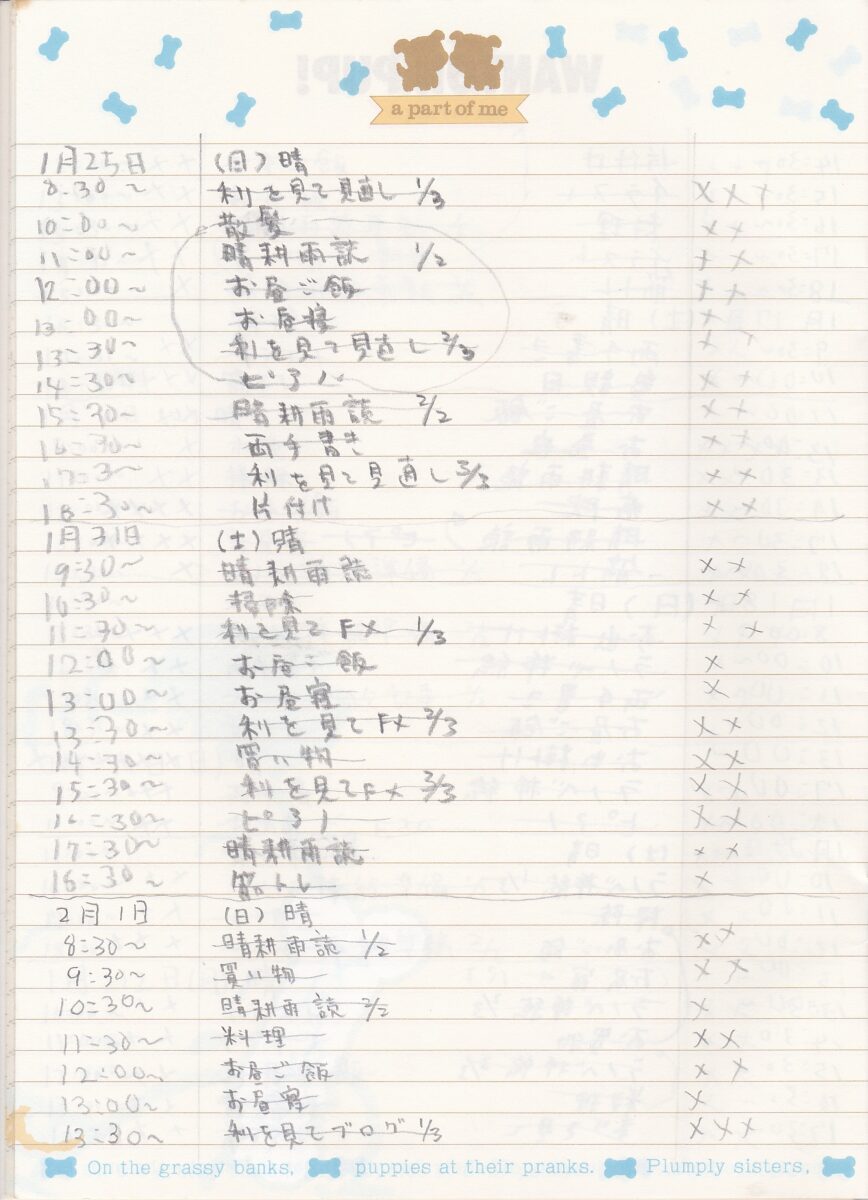 a part of me
1月25日 (日) 晴
8:30～ 利を見て見直し 1/3 ×××
10:00～ 散髪 ××
11:00～ 晴耕雨読 1/2 ××
12:00～ お昼ご飯 ××
13:00～ お昼寝 ×
13:30～ 利を見て見直し 2/3 ××
14:30～ ピアノ ××
15:30～ 晴耕雨読 2/2 ××
16:30～ 両手書き ××
17:3～ 利を見て見直し 3/3 ××
18:30～ 片付け ××
1月31日 (土) 晴
9:30～ 晴耕雨読 ××
10:30～ 掃除 ××
11:30～ 利を見てFX 1/3 ××
12:00～ お昼ご飯 ×
13:00～ お昼寝 ×
13:30～ 利を見てFX 2/3 ××
14:30～ 買い物 ××
15:30～ 利を見てFX 3/3 ××
16:30～ ピアノ ××
17:30～ 晴耕雨読 ××
18:30～ 筋トレ ×
2月1日 (日) 晴
8:30～ 晴耕雨読 1/2 ××
9:30～ 買い物 ××
10:30～ 晴耕雨読 2/2 ×
11:30～ 料理 ××
12:00～ お昼ご飯 ××
13:00～ お昼寝 ×
13:30～ 利を見てブログ 1/3 ×××
On the grassy banks, puppies at their pranks. Plumply sisters,